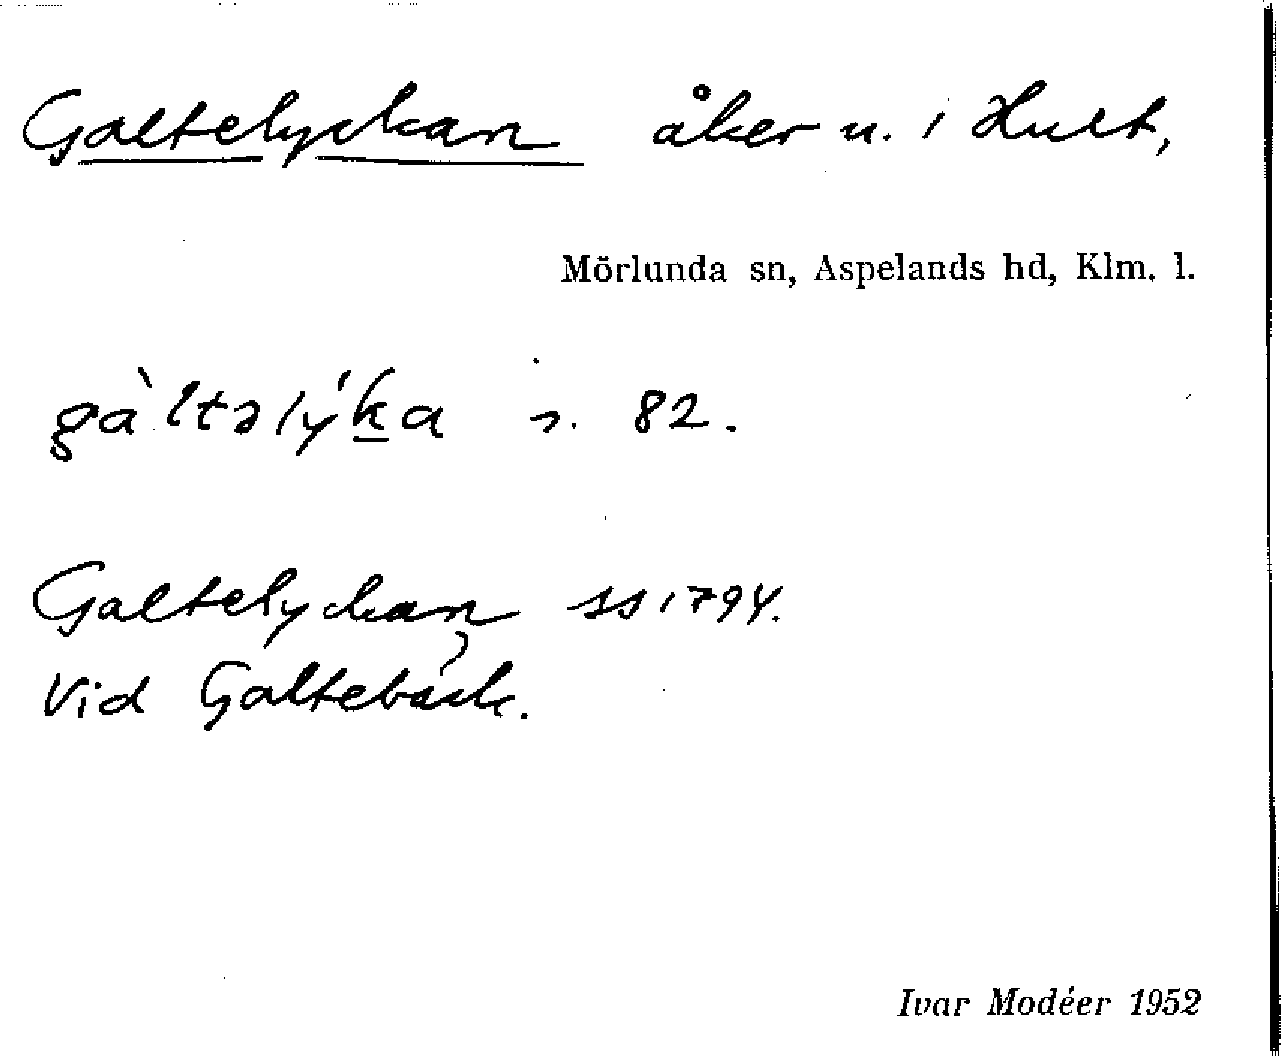 Galtelyckan åker n. i Hult,
Mörlunda sn, Aspelands hd, Klm. l.
gàltəlýka s. 82.
Galtelyckan SS 1794.
Vid Galtebäck.
Ivar Modéer 1952